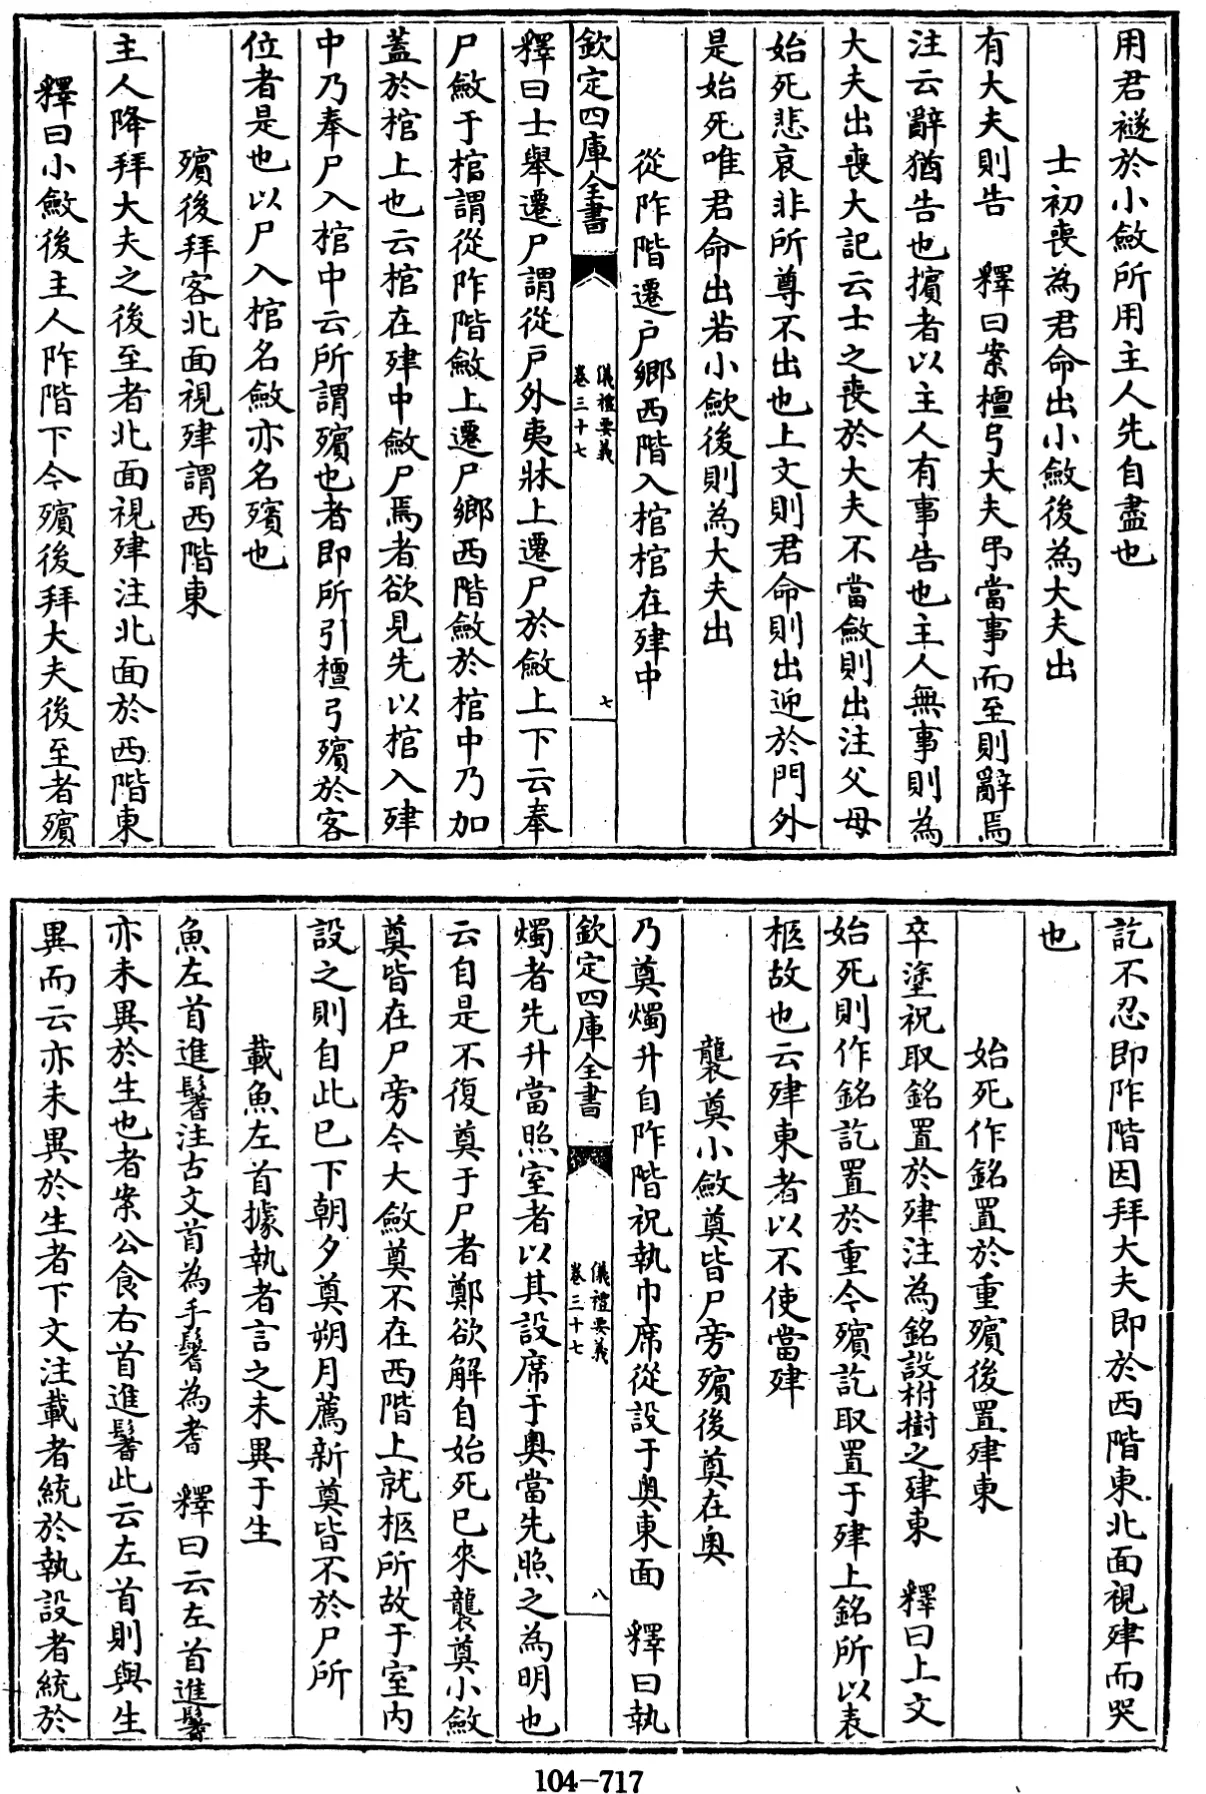 用君襚於小斂所用主人先自盡也
士初喪為君命出小斂後為大夫出
有大夫則告　釋曰案檀弓大夫弔當事而至則辭焉
注云辭猶告也擯者以主人有事告也主人無事則為
大夫出喪大記云士之喪於大夫不當斂則出注父母
始死悲哀非所尊不出也上文則君命則出迎於門外
是始死唯君命出若小斂後則為大夫出
從阼階遷户鄉西階入棺棺在肂中
欽定四庫全書
儀禮要義
卷三十七
七
釋曰士舉遷尸謂從戶外夷牀上遷尸於斂上下云奉
尸斂于棺謂從阼階斂上遷尸鄉西階斂於棺中乃加
蓋於棺上也云棺在肂中斂尸焉者欲見先以棺入肂
中乃奉尸入棺中云所謂殯也者即所引檀弓殯於客
位者是也以尸入棺名斂亦名殯也
殯後拜客北面視肂謂西階東
主人降拜大夫之後至者北面視肂注北面於西階東
釋曰小斂後主人阼階下今殯後拜大夫後至者殯
訖不忍即阼階因拜大夫即於西階東北面視肂而哭
也
始死作銘置於重殯後置肂東
卒塗祝取銘置於肂注為銘設柎樹之肂東　釋曰上文
始死則作銘訖置於重今殯訖取置于肂上銘所以表
柩故也云肂東者以不使當肂
襲奠小斂奠皆尸旁殯後奠在奧
乃奠燭升自阼階祝執巾席從設于奧東面　釋曰執
欽定四庫全書
儀禮要義
卷三十七
八
燭者先升當照室者以其設席于奧當先照之為明也
云自是不復奠于尸者鄭欲解自始死已來襲奠小斂
奠皆在尸旁今大斂奠不在西階上就柩所故于室內
設之則自此已下朝夕奠朔月薦新奠皆不於尸所
載魚左首據執者言之未異于生
魚左首進鬐注古文首為手鬐為耆　釋曰云左首進鬐
亦未異於生也者案公食右首進鬐此云左首則與生
異而云亦未異於生者下文注載者統於執設者統於
104-717